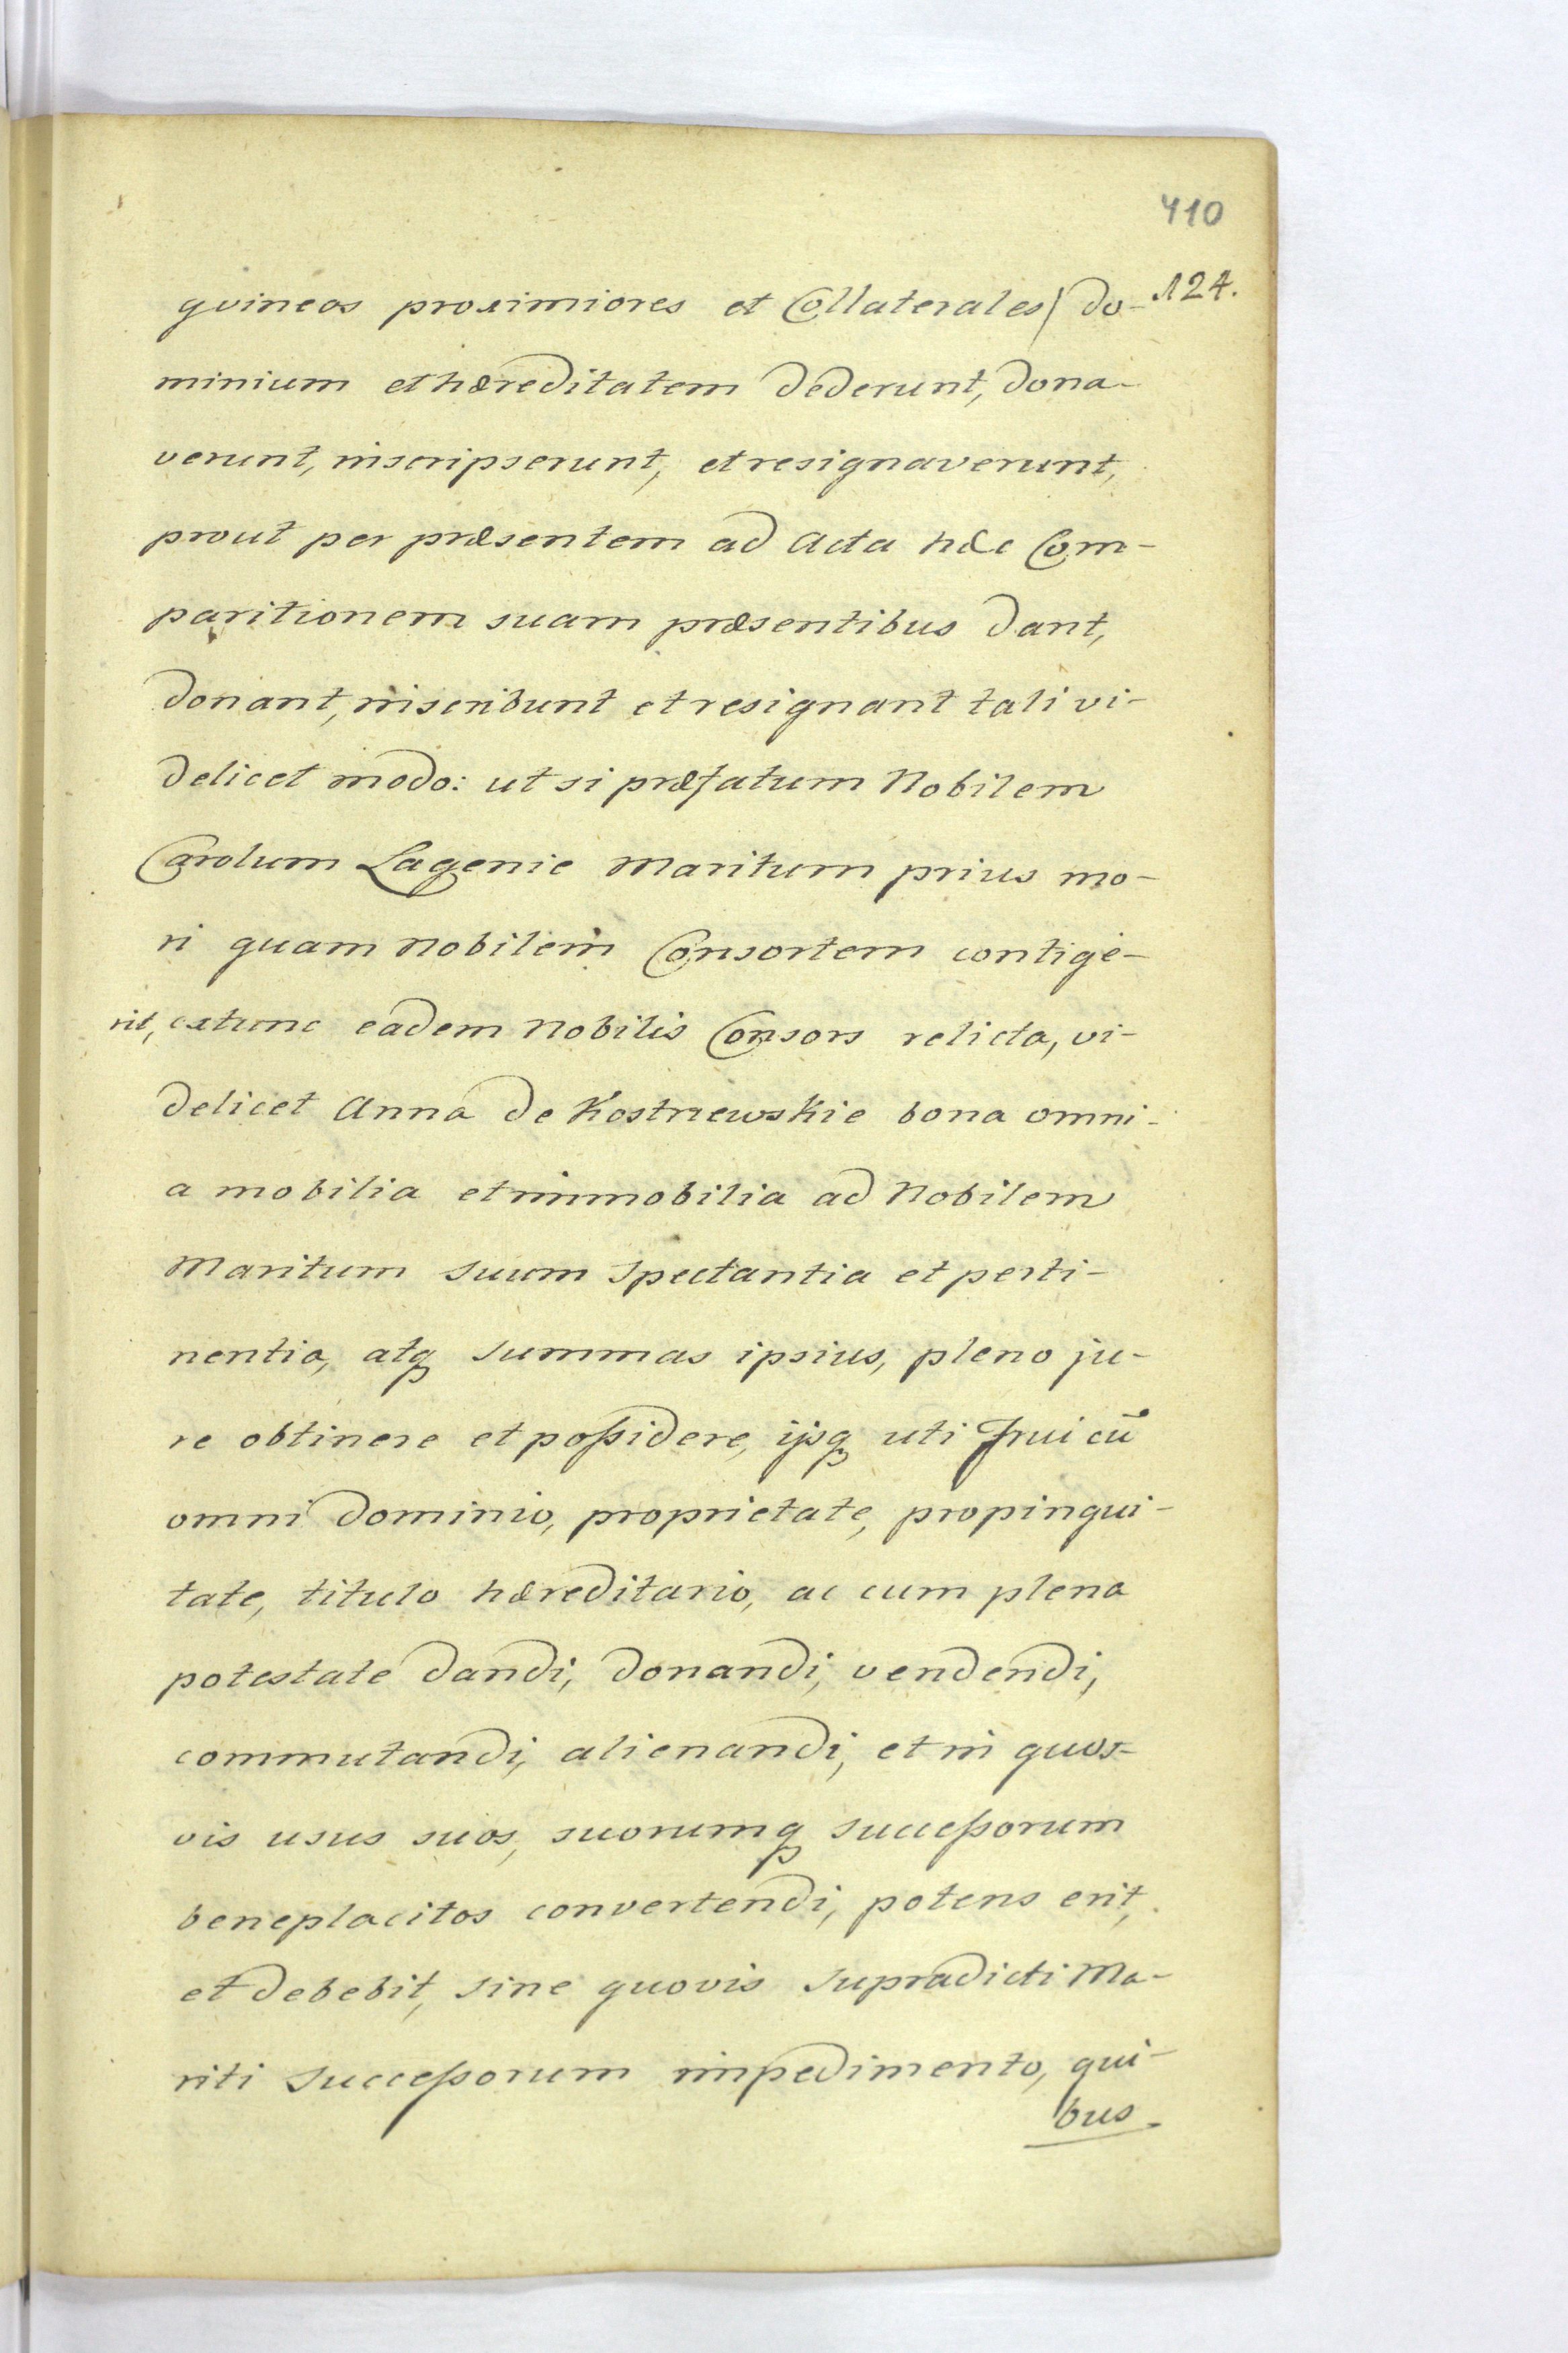 410
124.
gvineos proximiores et Collaterales/ do-
minium et hæreditatem dederunt, dona-
verunt, inscripserunt, et resignaverunt,
prout per præsentem ad Acta hæc Com-
paritionem suam præsentibus dant,
donant, inscribunt et resignant tali vi-
delicet modo: ut si præfatum Nobilem
Carolum Lagenie Maritum prius mo-
ri quam Nobilem Consortem contige-
rit, extunc eadem Nobilis Consors relicta, vi-
delicet Anna de Kostrzewskie bona omni-
a mobilia et immobilia ad Nobilem
Maritum suum spectantia et perti-
nentia, atq summas ipsius, pleno ju-
re obtinere et poßidere, ijsq uti frui cū
omni dominio, proprietate, propinqui-
tate, titulo hæreditario, ac cum plena
potestate dandi, donandi, vendendi,
commutandi, alienandi, et in quos-
vis usus suos, suorumq succeßorum
beneplacitos convertendi, potens erit,
et debebit, sine quovis supradicti Ma-
riti succeßorum impedimento, qui-
bus.